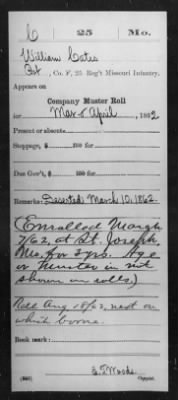 C | 25 | Mo.
William Cates
Pvt, Co. F, 25 Reg't Missouri Infantry.
Appears on
Company Muster Roll
for Mar & April, 1862
Present or absent
Stoppage, $ 100 for
Due Gov't, $ 100 for
Remarks: Deserted March 10, 1862
(Enrolled March
7/62, at St. Joseph,
Mo. for 3 yrs. Age
or Muster in not
shown on rolls.)
Roll Aug 18/62, next on
which borne.
Book mark:
(358)
E.T. Woods
Copyist.